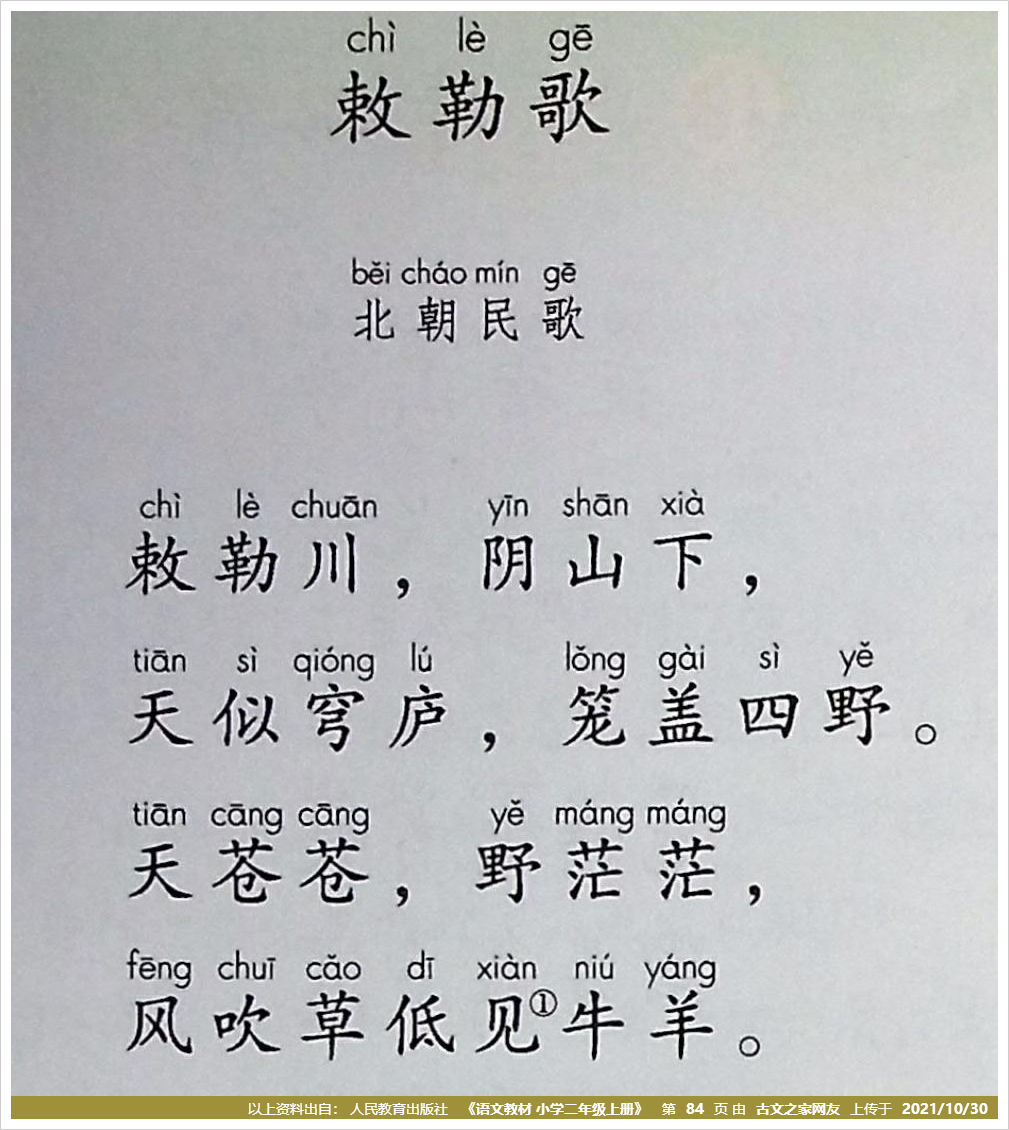 chì lè gē
敕勒歌
běi cháo mín gē
北朝民歌
chì lè chuān yīn shān xià
敕勒川，阴山下，
tiān sì qióng lú lǒng gài sì yě
天似穹庐，笼盖四野。
tiān cāng cāng yě máng máng
天苍苍，野茫茫，
fēng chuī cǎo dī xiàn niú yáng
风吹草低见①牛羊。
以上资料出自： 人民教育出版社 《语文教材 小学二年级上册》 第 84 页 由 古文之家网友 上传于 2021/10/30